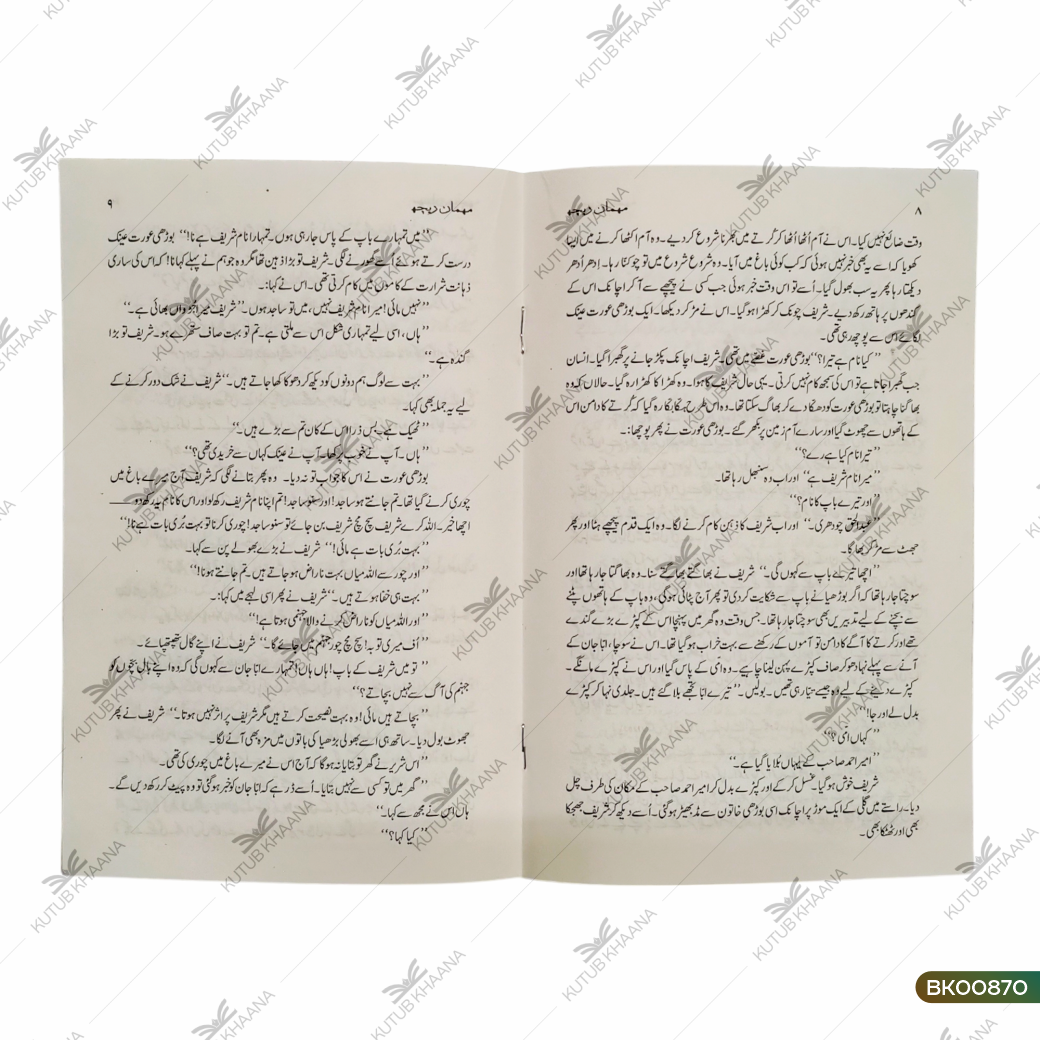 ۸
مہمان ریچھ
وقت ضائع نہیں کیا۔ اس نے آم اُٹھا اُٹھا کر کُرتے میں بھرنا شروع کر دیے۔ وہ آم اکٹھا کرنے میں ایسا
کھویا کہ اسے یہ بھی خبر نہیں ہوئی کہ کب کوئی باغ میں آیا۔ وہ شروع شروع میں تو چوکنا رہا۔ اِدھر اُدھر
دیکھتا رہا پھر یہ سب بھول گیا۔ اُسے تو اس وقت خبر ہوئی جب کسی نے پیچھے سے آ کر اچانک اس کے
کندھوں پر ہاتھ رکھ دیے۔ شریف چونک کر کھڑا ہو گیا۔ اس نے مڑ کر دیکھا۔ ایک بوڑھی عورت عینک
لگائے اس سے پوچھ رہی تھی۔
’’ کیا نام ہے تیرا؟‘‘ بوڑھی عورت غصّے میں تھی۔ شریف اچانک پکڑ جانے پر گھبرا گیا۔ انسان
جب گھبرا جاتا ہے تو اس کی سمجھ کام نہیں کرتی۔ یہی حال شریف کا ہوا۔ وہ کھڑا کا کھڑا رہ گیا۔ حالاں کہ وہ
بھاگنا چاہتا تو بوڑھی عورت کو دھکا دے کر بھاگ سکتا تھا۔ وہ اس طرح ہکّا بکّا رہ گیا کہ کُرتے کا دامن اس
کے ہاتھوں سے چھوٹ گیا اور سارے آم زمین پر بکھر گئے۔ بوڑھی عورت نے پھر پوچھا:۔
’’ تیرا نام کیا ہے رے؟‘‘
’’میرا نام شریف ہے‘‘ اور اب وہ سنبھل رہا تھا۔
’’اور تیرے باپ کا نام؟‘‘
’’عبدالحق چودھری۔‘‘ اور اب شریف کا ذہن کام کرنے لگا۔ وہ ایک قدم پیچھے ہٹا اور پھر
جھٹ سے مڑ کر بھاگا۔
’’اچھا تیرے باپ سے کہوں گی۔‘‘ شریف نے بھاگتے بھاگتے سنا۔ وہ بھاگتا جا رہا تھا اور
سوچتا جا رہا تھا کہ اگر بوڑھیا نے باپ سے شکایت کر دی تو پھر آج پٹائی ہو گی، وہ باپ کے ہاتھوں پٹنے
سے بچنے کے لیے تدبیریں بھی سوچتا جا رہا تھا۔ جس وقت وہ گھر میں پہنچا اس کے کپڑے بڑے گندے
تھے اور کرتے کا آگے کا دامن تو آموں کے رکھنے سے بہت خراب ہو گیا تھا۔ اس نے سوچا، ابّا جان کے
آنے سے پہلے نہا دھو کر صاف کپڑے پہن لینا چاہیے۔ وہ امّی کے پاس گیا اور اس نے کپڑے مانگے۔
کپڑے دینے کے لیے وہ جیسے تیار ہی تھیں۔ بولیں۔’’ تیرے ابّا تجھے بلا گئے ہیں۔ جلدی نہا کر کپڑے
بدل لے اور جا!‘‘
’’ کہاں امّی؟‘‘
’’امیر احمد صاحب کے یہاں بُلایا گیا ہے۔‘‘
شریف خوش ہو گیا۔ غسل کر کے اور کپڑے بدل کر امیر احمد صاحب کے مکان کی طرف چل
دیا۔ راستے میں گلی کے ایک موڑ پر اچانک اسی بوڑھی خاتون سے مڈبھیڑ ہو گئی۔ اُسے دیکھ کر شریف جھجکا
بھی اور ٹھٹکا بھی۔
مہمان ریچھ
۹
’’ میں تمہارے باپ کے پاس جا رہی ہوں۔ تمہارا نام شریف ہے نا!‘‘ بوڑھی عورت عینک
درست کرتے ہوئے اُسے گھورنے لگی۔ شریف تو بڑا ذہین تھا مگر وہ جو ہم نے پہلے کہا نا! کہ اس کی ساری
ذہانت شرارت کے کاموں میں کام کرتی تھی۔ اس نے کہا:۔
’’نہیں مائی! میرا نام شریف نہیں، میں تو ساجد ہوں۔‘‘ شریف میرا جڑواں بھائی ہے۔‘‘
’’ ہاں، اسی لیے تمہاری شکل اس سے ملتی ہے۔ تم تو بہت صاف ستھرے ہو۔ شریف تو بڑا
گندہ ہے۔‘‘
’’ بہت سے لوگ ہم دونوں کو دیکھ کر دھوکا کھا جاتے ہیں۔‘‘ شریف نے شک دور کرنے کے
لیے یہ جملہ بھی کہا۔
’’ ٹھیک ہے۔ بس ذرا اس کے کان تم سے بڑے ہیں۔‘‘
’’ ہاں۔ آپ نے خوب پرکھا۔ آپ نے عینک کہاں سے خریدی تھی؟‘‘
بوڑھی عورت نے اس کا جواب تو نہ دیا۔ وہ پھر بتانے لگی کہ شریف آج میرے باغ میں
چوری کرنے گیا تھا۔ تم جانتے ہو ساجد! اور سنو ساجد! تم اپنا نام شریف رکھ لو اور اس کا نام یہ رکھ دو ——
اچھا خیر۔ اللہ کرے شریف سچ مچ شریف بن جائے تو سنو ساجد! چوری کرنا تو بہت بُری بات ہے نا!‘‘
’’ بہت بُری بات ہے مائی!‘‘ شریف نے بڑے بھولے پن سے کہا۔
’’ اور چور سے اللہ میاں بہت ناراض ہو جاتے ہیں۔ تم جانتے ہو نا!‘‘
’’ بہت ہی خفا ہوتے ہیں۔‘‘ شریف نے پھر اسی لہجے میں کہا:۔
’’اور اللہ میاں کو ناراض کرنے والا جہنمی ہوتا ہے!‘‘
’’ اُف میری توبہ! سچ مچ چور جہنم میں جائے گا۔‘‘ شریف نے اپنے گال تھپتھپائے۔
’’ تو میں شریف کے باپ! ہاں ہاں! تمہارے ابّا جان سے کہوں گی کہ وہ اپنے بال بچوں کو
جہنم کی آگ سے نہیں بچاتے؟‘‘
’’ بچاتے ہیں مائی! وہ بہت نصیحت کرتے ہیں مگر شریف پر اثر نہیں ہوتا۔‘‘ شریف نے پھر
جھوٹ بول دیا۔ ساتھ ہی اسے بھولی بڑھیا کی باتوں میں مزہ بھی آنے لگا۔
’’ اس شریر نے گھر تو بتایا نہ ہو گا کہ آج اس نے میرے باغ میں چوری کی تھی۔
’’ گھر میں تو کسی سے نہیں بتایا۔ اُسے ڈر ہے کہ ابّا جان کو خبر ہو گئی تو وہ پیٹ کر رکھ دیں گے۔
ہاں اس نے مجھ سے کہا۔‘‘
’’ کیا کہا؟‘‘
KUTUB KHAANA
BK00870